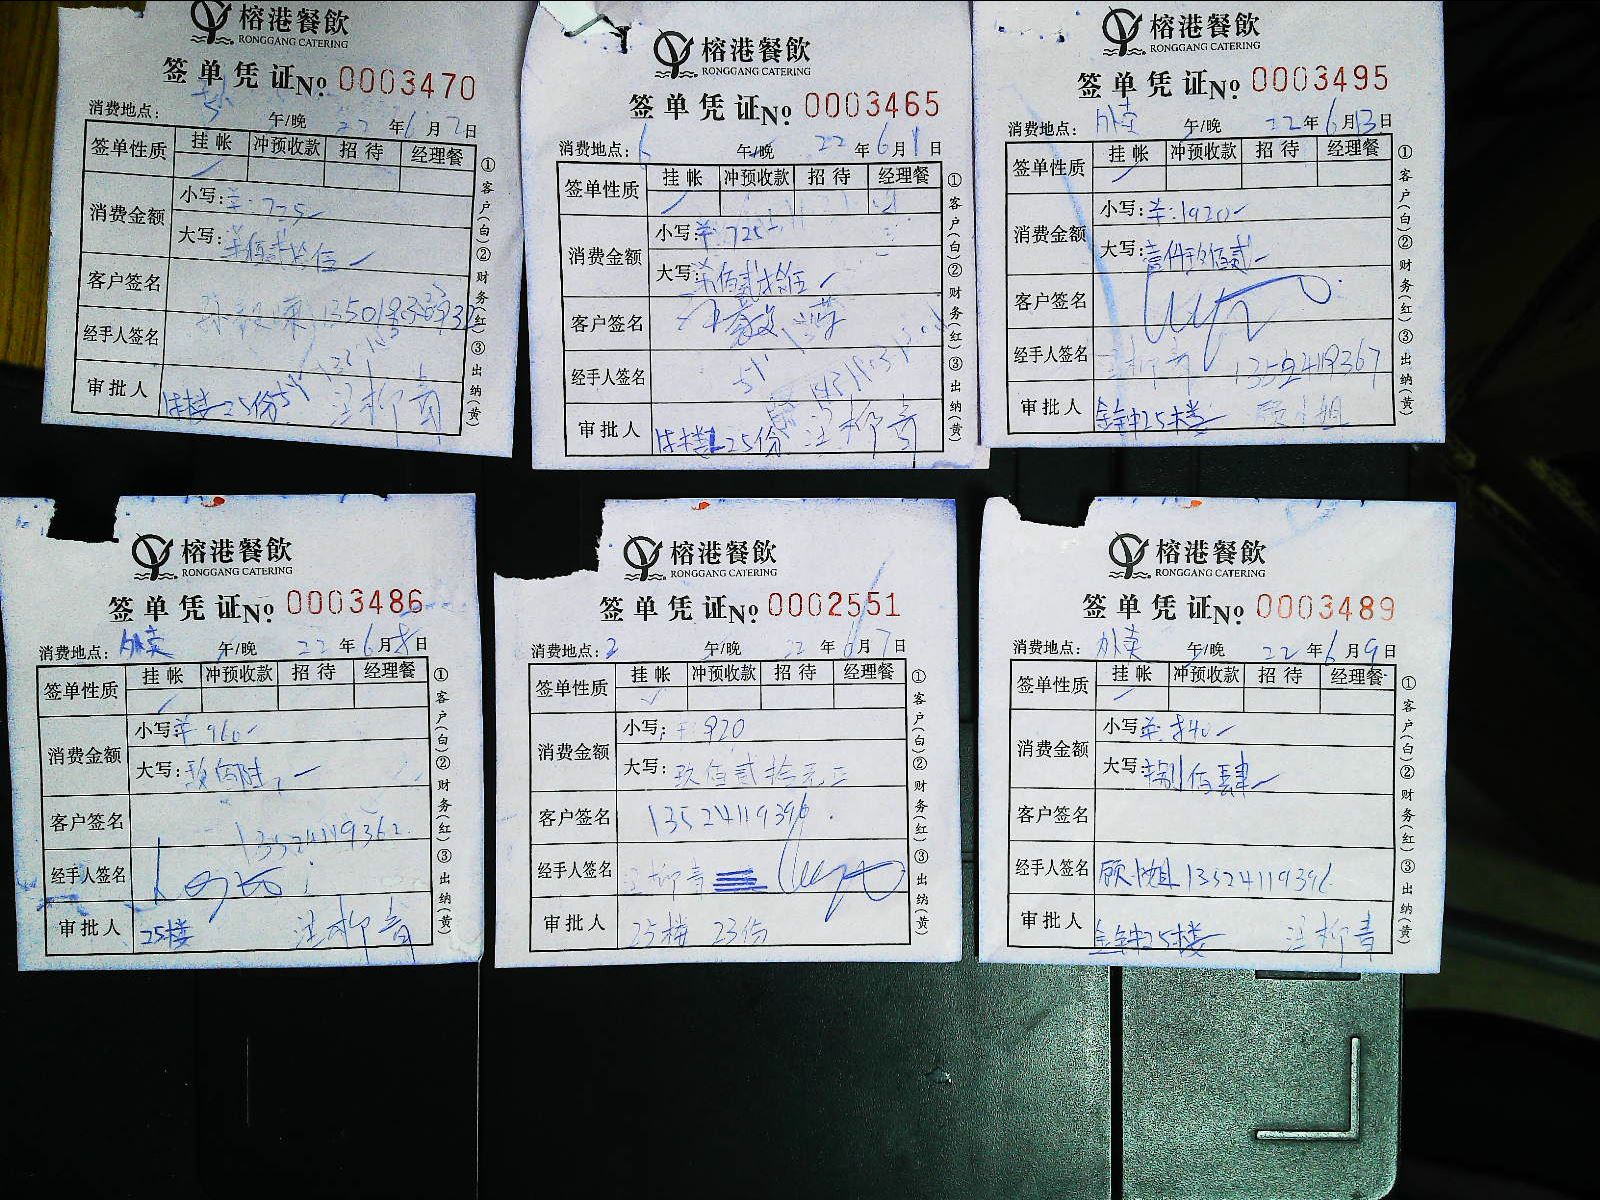 榕港餐飲
RONGGANG CATERING
签单凭证No. 0003470
消费地点: 午/晚 22年6月2日
签单性质 挂帐 冲预收款 招待 经理餐
消费金额 小写: 725
大写:
客户签名
经手人签名
审批人 25份 汪柳青
①客户(白)②财务(红)③出纳(黄)
榕港餐飲
RONGGANG CATERING
签单凭证No. 0003465
消费地点: 6 午/晚 22年6月1日
签单性质 挂帐 冲预收款 招待 经理餐
消费金额 小写: 725
大写: 柒佰贰拾伍
客户签名
经手人签名
审批人 25份 汪柳青
①客户(白)②财务(红)③出纳(黄)
榕港餐飲
RONGGANG CATERING
签单凭证No. 0003495
消费地点: 外卖 午/晚 22年6月13日
签单性质 挂帐 冲预收款 招待 经理餐
消费金额 小写: 1920
大写: 壹仟玖佰贰
客户签名
经手人签名 汪柳青
审批人 金钟25楼 顾小姐
①客户(白)②财务(红)③出纳(黄)
榕港餐飲
RONGGANG CATERING
签单凭证No. 0003486
消费地点: 外卖 午/晚 22年6月8日
签单性质 挂帐 冲预收款 招待 经理餐
消费金额 小写: 960
大写: 玖佰陆
客户签名
经手人签名
审批人 25楼 汪柳青
①客户(白)②财务(红)③出纳(黄)
榕港餐飲
RONGGANG CATERING
签单凭证No. 0002551
消费地点: 2 午/晚 22年6月7日
签单性质 挂帐 冲预收款 招待 经理餐
消费金额 小写: 920
大写: 玖佰贰拾元正
客户签名 13524119396
经手人签名 汪柳青
审批人 25楼 23份
①客户(白)②财务(红)③出纳(黄)
榕港餐飲
RONGGANG CATERING
签单凭证No. 0003489
消费地点: 外卖 午/晚 22年6月9日
签单性质 挂帐 冲预收款 招待 经理餐
消费金额 小写: 840
大写: 捌佰肆
客户签名
经手人签名 顾小姐 13524119396
审批人 金钟25楼 汪柳青
①客户(白)②财务(红)③出纳(黄)